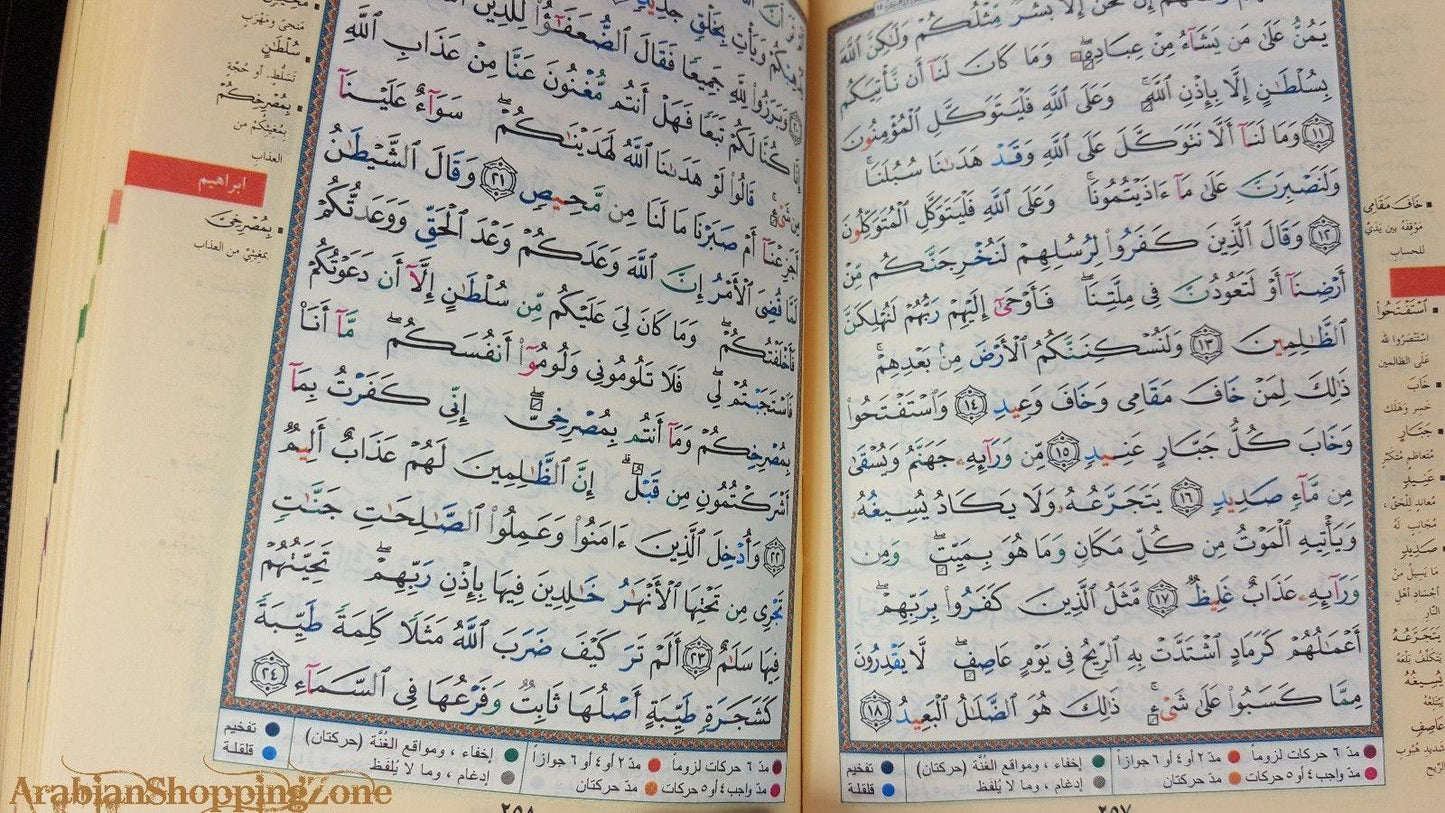 إِن نَّحْنُ إِلَّا بَشَرٌ مِّثْلُكُمْ وَلَٰكِنَّ ٱللَّهَ
يَمُنُّ عَلَىٰ مَن يَشَآءُ مِنْ عِبَادِهِۦ ۖ وَمَا كَانَ لَنَآ أَن نَّأْتِيَكُم
بِسُلْطَٰنٍ إِلَّا بِإِذْنِ ٱللَّهِ ۚ وَعَلَى ٱللَّهِ فَلْيَتَوَكَّلِ ٱلْمُؤْمِنُونَ
١١ وَمَا لَنَآ أَلَّا نَتَوَكَّلَ عَلَى ٱللَّهِ وَقَدْ هَدَىٰنَا سُبُلَنَا ۚ
وَلَنَصْبِرَنَّ عَلَىٰ مَآ ءَاذَيْتُمُونَا ۚ وَعَلَى ٱللَّهِ فَلْيَتَوَكَّلِ ٱلْمُتَوَكِّلُونَ
١٢ وَقَالَ ٱلَّذِينَ كَفَرُوا۟ لِرُسُلِهِمْ لَنُخْرِجَنَّكُم مِّنْ
أَرْضِنَآ أَوْ لَتَعُودُنَّ فِى مِلَّتِنَا ۖ فَأَوْحَىٰٓ إِلَيْهِمْ رَبُّهُمْ لَنُهْلِكَنَّ
ٱلظَّٰلِمِينَ ١٣ وَلَنُسْكِنَنَّكُمُ ٱلْأَرْضَ مِنۢ بَعْدِهِمْ ۚ
ذَٰلِكَ لِمَنْ خَافَ مَقَامِى وَخَافَ وَعِيدِ ١٤ وَٱسْتَفْتَحُوا۟
وَخَابَ كُلُّ جَبَّارٍ عَنِيدٍ ١٥ مِّن وَرَآئِهِۦ جَهَنَّمُ وَيُسْقَىٰ
مِن مَّآءٍ صَدِيدٍ ١٦ يَتَجَرَّعُهُۥ وَلَا يَكَادُ يُسِيغُهُۥ
وَيَأْتِيهِ ٱلْمَوْتُ مِن كُلِّ مَكَانٍ وَمَا هُوَ بِمَيِّتٍ ۖ وَمِن
وَرَآئِهِۦ عَذَابٌ غَلِيظٌ ١٧ مَّثَلُ ٱلَّذِينَ كَفَرُوا۟ بِرَبِّهِمْ ۖ
أَعْمَٰلُهُمْ كَرَمَادٍ ٱشْتَدَّتْ بِهِ ٱلرِّيحُ فِى يَوْمٍ عَاصِفٍ ۖ لَّا يَقْدِرُونَ
مِمَّا كَسَبُوا۟ عَلَىٰ شَىْءٍ ۚ ذَٰلِكَ هُوَ ٱلضَّلَٰلُ ٱلْبَعِيدُ ١٨
خَافَ مَقَامِي
مَوْقِفَهُ بين يديّ
للحساب
ٱسْتَفْتَحُوا۟
استنصروا لله
على الظالمين
خَابَ
خسر وهلك
جَبَّارٍ
متعاظم متكبر
عَنِيدٍ
معاند للحق ،
مُجانِبٍ لَهُ
صَدِيدٍ
ما يسيل من
أجساد أهل
النار
يَتَجَرَّعُهُ
يتكلف بلعه
يُسِيغُهُ
يبتلعه
عَاصِفٍ
شديد هبوب
الريح
مدّ ٦ حركات لزوماً مدّ ٢ أو ٤ أو ٦ جوازاً إخفاء ، ومواقع الغُنَّة (حركتان) تفخيم
مدّ واجب ٤ أو ٥ حركات مدّ حركتان إدغام ، وما لا يُلفَظ قلقلة
٢٥٧
وَيَأْتِ بِخَلْقٍ جَدِيدٍ
وَبَرَزُوا۟ لِلَّهِ جَمِيعًا فَقَالَ ٱلضُّعَفَٰٓؤُا۟ لِلَّذِينَ
إِنَّا كُنَّا لَكُمْ تَبَعًا فَهَلْ أَنتُم مُّغْنُونَ عَنَّا مِنْ عَذَابِ ٱللَّهِ
مِن شَىْءٍ ۚ قَالُوا۟ لَوْ هَدَىٰنَا ٱللَّهُ لَهَدَيْنَٰكُمْ ۖ سَوَآءٌ عَلَيْنَآ
أَجَزِعْنَآ أَمْ صَبَرْنَا مَا لَنَا مِن مَّحِيصٍ ٢١ وَقَالَ ٱلشَّيْطَٰنُ
لَمَّا قُضِىَ ٱلْأَمْرُ إِنَّ ٱللَّهَ وَعَدَكُمْ وَعْدَ ٱلْحَقِّ وَوَعَدتُّكُمْ
فَأَخْلَفْتُكُمْ ۖ وَمَا كَانَ لِىَ عَلَيْكُم مِّن سُلْطَٰنٍ إِلَّآ أَن دَعَوْتُكُمْ
فَٱسْتَجَبْتُمْ لِى ۖ فَلَا تَلُومُونِى وَلُومُوٓا۟ أَنفُسَكُم ۖ مَّآ أَنَا۠
بِمُصْرِخِكُمْ وَمَآ أَنتُم بِمُصْرِخِىَّ ۖ إِنِّى كَفَرْتُ بِمَآ
أَشْرَكْتُمُونِ مِن قَبْلُ ۗ إِنَّ ٱلظَّٰلِمِينَ لَهُمْ عَذَابٌ أَلِيمٌ
٢٢ وَأُدْخِلَ ٱلَّذِينَ ءَامَنُوا۟ وَعَمِلُوا۟ ٱلصَّٰلِحَٰتِ جَنَّٰتٍ
تَجْرِى مِن تَحْتِهَا ٱلْأَنْهَٰرُ خَٰلِدِينَ فِيهَا بِإِذْنِ رَبِّهِمْ ۖ تَحِيَّتُهُمْ
فِيهَا سَلَٰمٌ ٢٣ أَلَمْ تَرَ كَيْفَ ضَرَبَ ٱللَّهُ مَثَلًا كَلِمَةً طَيِّبَةً
كَشَجَرَةٍ طَيِّبَةٍ أَصْلُهَا ثَابِتٌ وَفَرْعُهَا فِى ٱلسَّمَآءِ ٢٤
منجى ومَهْرَب
سُلْطَٰنٍ
تسلّط أو حجّة
بِمُصْرِخِكُمْ
بمغيثكم من
العذاب
ابراهيم
بِمُصْرِخِيَّ
بمغيثيّ من العذاب
مدّ ٦ حركات لزوماً مدّ ٢ أو ٤ أو ٦ جوازاً إخفاء ، ومواقع الغُنَّة (حركتان) تفخيم
مدّ واجب ٤ أو ٥ حركات مدّ حركتان إدغام ، وما لا يُلفَظ قلقلة
٢٥٨
ArabianShoppingZone